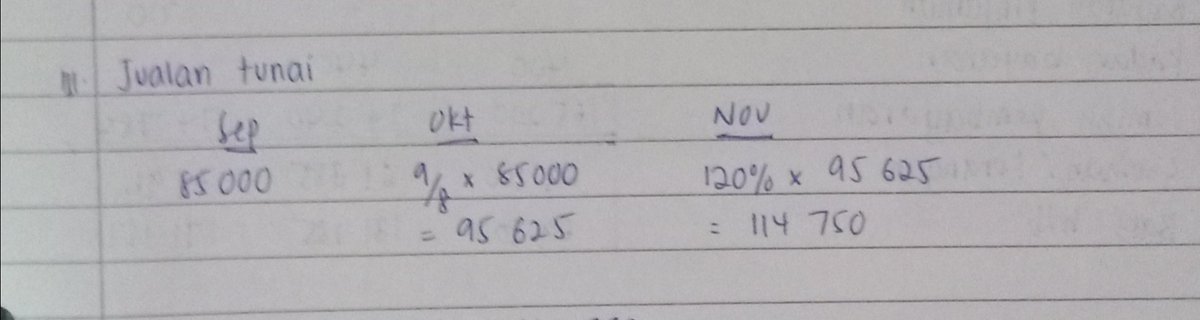 Jualan tunai
Sep Okt Nov
85000 9/8 x 85000 120% x 95 625
= 95 625 = 114 750